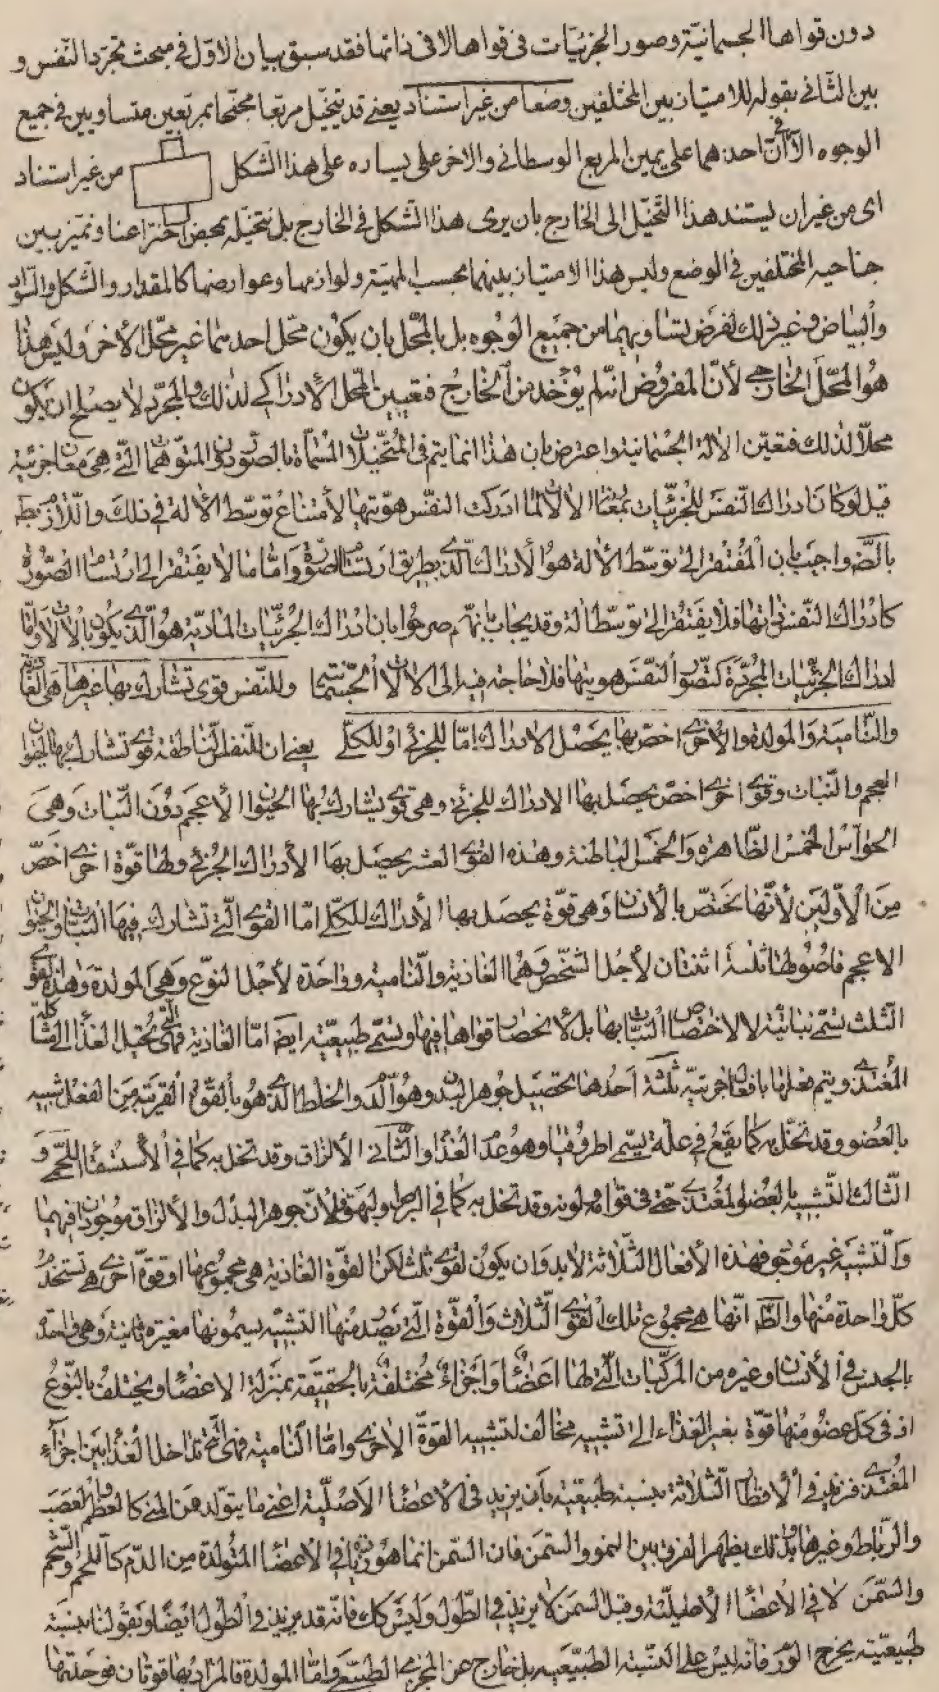 دون قواها الجسمانية وصور الجزئيات فى قواها لا فى ذاتها فقد سبق بيان الاول فى مبحث تجرد النفس و
بين الثانى بقوله للامتياز بين المختلفين وضعا من غير استناد يعنى قد يتخيل مربعا مجنحا بمربعين متساويين فى جميع
الوجوه الا ان احدهما على يمين المربع الوسطانى والاخر على يساره على هذا الشكل من غير استناد
اى من غير ان يستند هذا التخيل الى الخارج بان يرى هذا الشكل فى الخارج بل نتخيله بمحض اختراعنا ونميز بين
جناحيه المختلفين فى الوضع وليس هذا الامتياز بينهما بحسب المهية ولوازمها وعوارضها كالمقدار والشكل والسواد
والبياض وغير ذلك لفرض تساويهما من جميع الوجوه بل بالمحل بان يكون محل احدهما غير محل الاخر وليس هذا
هو المحل الخارجى لان المفروض انه لم يؤخذ من الخارج فتعين المحل الادراكى لذلك والمجرد لا يصلح ان يكون
محلا لذلك فتعين الالة الجسمانية واعترض بان هذا انما يتم فى المتخيلات المسماة بالصور دون المتوهمات التى هى معان جزئية
قيل لو كان ادراك النفس للجزئيات بمعونة الالات لما ادركت النفس هويتها لامتناع توسط الالة فى ذلك واللازم بط
بالضرورة واجيب بان المفتقر الى توسط الالة هو الادراك الذى بطريق ارتسام الصورة واما ما لا يفتقر الى ارتسام الصورة
كادراك النفس ذاتها فلا يفتقر الى توسط الة وقد يجاب بانهم صرحوا بان ادراك الجزئيات المادية هو الذى يكون بالالات واما
ادراك الجزئيات المجردة كتصور النفس هويتها فلا حاجة فيه الى الالات الجسمانية وللنفس قوى تشارك بها غيرها هى الغاذية
والنامية والمولدة والاخرى اخص بها يحصل الادراك اما للجزئى او للكلى يعنى ان للنفس الناطقة قوى تشارك بها الحيوان
العجم والنبات وقوى اخرى اخص يحصل بها الادراك للجزئى وهى قوى يشارك بها الحيوان الاعجم دون النبات وهى
الحواس الخمس الظاهرة والخمس الباطنة وهذه القوى العشر يحصل بها الادراك الجزئى ولها قوة اخرى اخص
من الاولين لانها تختص بالانسان وهى قوة يحصل بها الادراك للكلى اما القوى التى تشارك فيها النبات والحيوان
الاعجم فاصولها ثلثة اثنتان لاجل الشخص وهما الغاذية والنامية وواحدة لاجل النوع وهى المولدة وهذه القوى
الثلث تسمى نباتية لا لاختصاص النبات بها بل لانحصار قواها فيها وتسمى طبيعية ايضا اما الغاذية فهى التى تحيل الغذاء الى مشاكلة
المغتذى ويتم فعلها بافعال جزئية ثلثة احدها تحصيل جوهر البدن وهو الدم والخلط الذى هو بالقوة القريبة من الفعل شبيه
بالعضو وقد تخل به كما يقع فى علة تسمى اطروفيا وهو عدم الغذاء والثانى الالزاق وقد تخل به كما فى الاستسقاء اللحمى و
الثالث التشبيه بالعضو المغتذى حتى فى قوامه ولونه وقد تخل به كما فى البرص والبهق فان جوهر البدل والالزاق موجودان فيهما
والتشبيه غير موجود فهذه الافعال الثلاثة لا بد وان يكون لقوى ثلث لكن القوة الغاذية هى مجموعها او قوة اخرى هى تستخدم
كل واحدة منها والظ انها هى مجموع تلك القوى الثلاث والقوة التى يصدر منها التشبيه يسمونها مغيرة ثانية وهى واحدة
بالجنس فى الانسان وغيره من المركبات التى لها اعضاء واجزاء مختلفة بالحقيقة بمنزلة الاعضاء ويختلف بالنوع
اذ فى كل عضو منها قوة بغير الغذاء الى تشبيه مخالف لتشبيه القوة الاخرى واما النامية فهى التى تداخل الغذاء بين اجزاء
المغتذى فتزيد فى الاقطار الثلاثة بنسبة طبيعية بان يزيد فى الاعضاء الاصلية اعنى ما يتولد من المنى كالعظم والعصب
والرباط وغيرها وبذلك يظهر الفرق بين النمو والسمن فان السمن انما هو زيادة فى الاعضاء المتولدة من الدم كاللحم والشحم
والسمن لا فى الاعضاء الاصلية وقيل السمن لا يزيد فى الطول وليس كك فانه قد يزيد فى الطول ايضا وبقولنا بنسبة
طبيعية يخرج الورم فانه ليس على النسبة الطبيعية بل خارج عن المجرى الطبيعى واما المولدة فالمراد بها قوتان فوحدتها